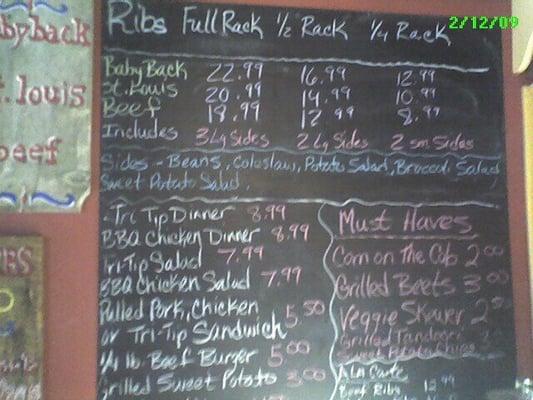 2/12/09
Ribs Full Rack 1/2 Rack 1/4 Rack
Baby Back 22.99 16.99 12.99
St. Louis 20.99 14.99 10.99
Beef 18.99 12.99 8.99
Includes 3 Lg Sides 2 Lg Sides 2 sm. Sides
Sides - Beans, Coleslaw, Potato Salad, Broccoli Salad,
Sweet Potato Salad.
Tri Tip Dinner 8.99
BBQ Chicken Dinner 8.99
Tri-Tip Salad 7.99
BBQ Chicken Salad 7.99
Pulled Pork, Chicken
or Tri-Tip Sandwich 5.50
1/4 lb. Beef Burger 5.00
Grilled Sweet Potato 3.00
Must Haves
Corn on the Cob 2.00
Grilled Beets 3.00
Veggie Skewer
Grilled Tandoori
Sweet Potato
A La Carte
Beef Ribs
byback
. louis
beef